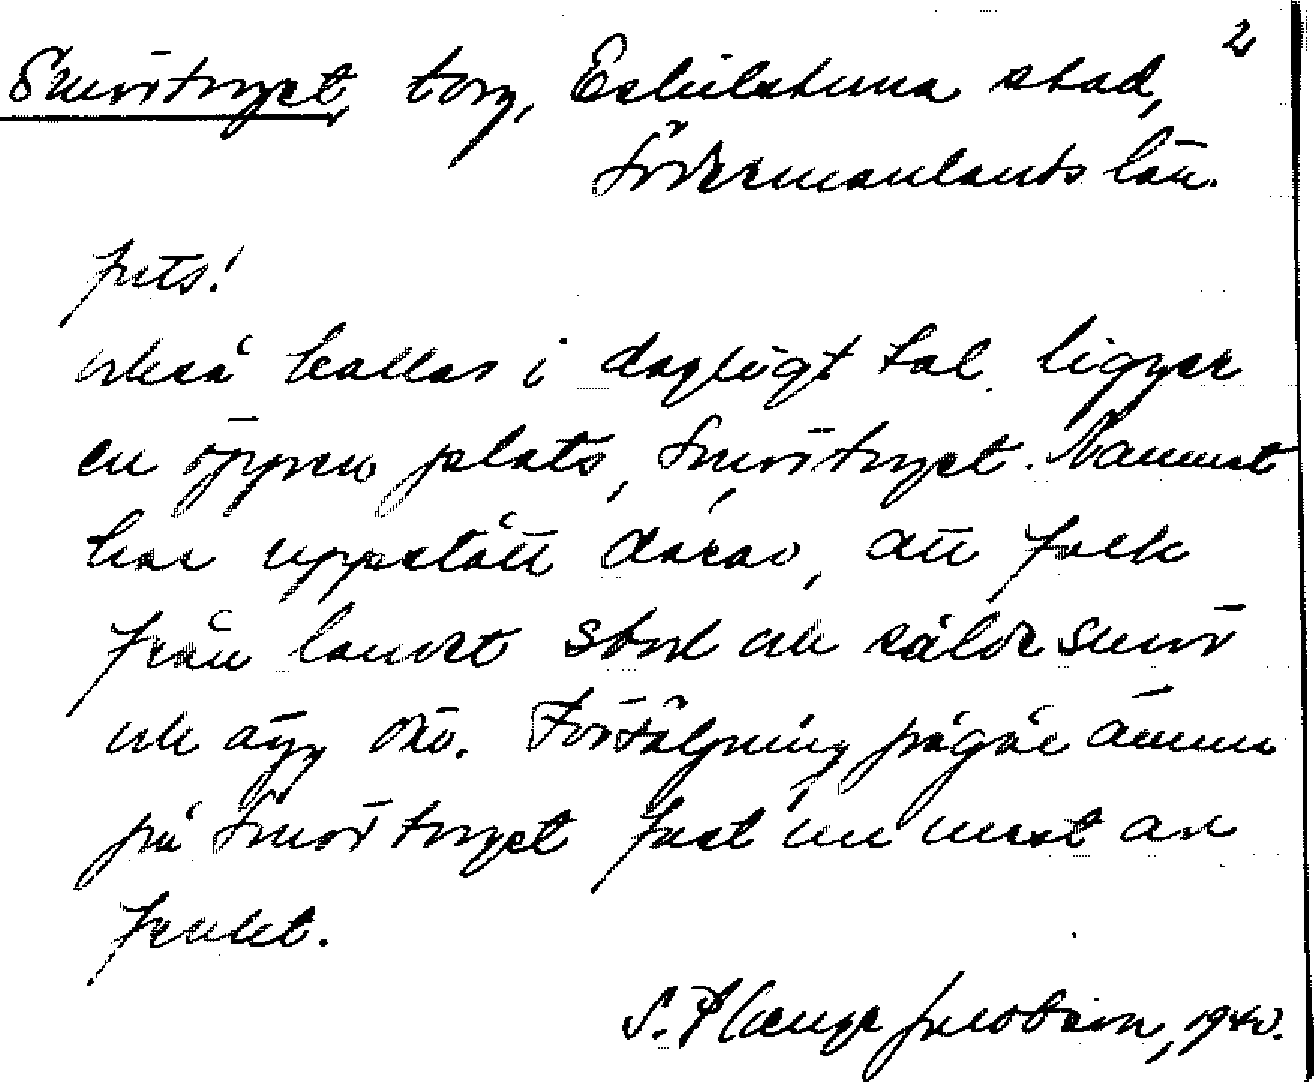 2
Smörtorget, torg, Eskilstuna stad,
Södermanlands län.
forts!
också kallas i dagligt tal ligger
en öppen plats, Smörtorget. Namnet
har uppstått därav, att folk
från landet stod och sålde smör
och ägg o.s.v. Försäljning pågår ännu
på Smörtorget fast nu mest av
frukt.
S. Jacobson, 1940.